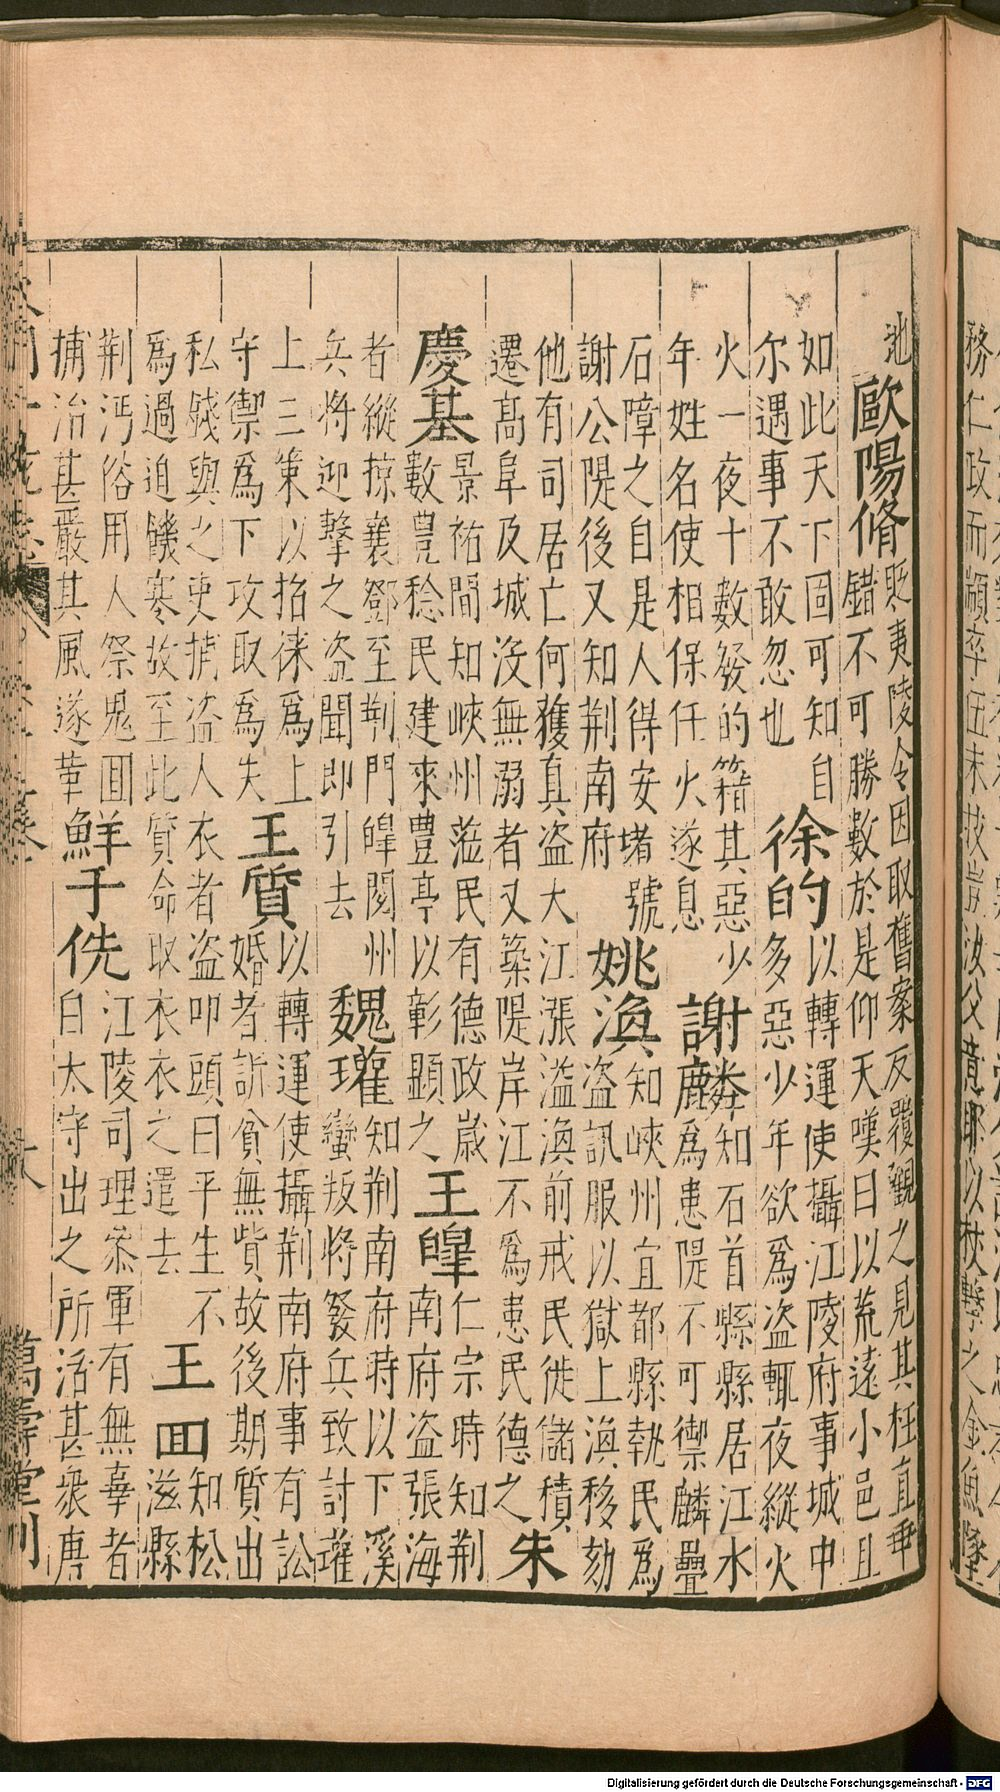 地
歐陽脩
貶夷陵令因取舊案反覆觀之見其枉直乖
錯不可勝數於是仰天嘆曰以荒遠小邑且
如此天下固可知自
尔遇事不敢忽也
徐的
以轉運使攝江陵府事城中
多惡少年欲爲盗輒夜縱火
火一夜十數發的籍其惡少
年姓名使相保任火遂息
謝麟
知石首縣縣居江水
爲患隄不可禦麟疊
石障之自是人得安堵號
謝公隄後又知荆南府
姚渙
知峽州宜都縣執民爲
盗訊服以獄上渙移劾
他有司居亡何獲真盗大江漲溢渙前戒民徙儲積
遷高阜及城没無溺者又築隄岸江不爲患民德之
朱
慶基
景祐間知峽州蒞民有德政歲
數豊稔民建來豊亭以彰顯之
王皥
仁宗時知荆
南府盗張海
者縱掠襄鄧至荆門皥閱州
兵将迎擊之盗聞即引去
魏瓘
知荆南府時以下溪
蠻叛将發兵致討瓘
上三策以招徕爲上
守禦爲下攻取爲失
王質
以轉運使攝荆南府事有訟
婚者訴貧無貲故後期質出
私錢與之吏捕盗人衣者盗叩頭曰平生不
爲過迫饑寒故至此質命取衣衣之遣去
王囬
知松
滋縣
荆沔俗用人祭鬼囬
捕治甚嚴其風遂革
鮮于侁
江陵司理叅軍有無辜者
白太守出之所活甚衆唐
萬壽堂刊
Digitalisierung gefördert durch die Deutsche Forschungsgemeinschaft - DFG